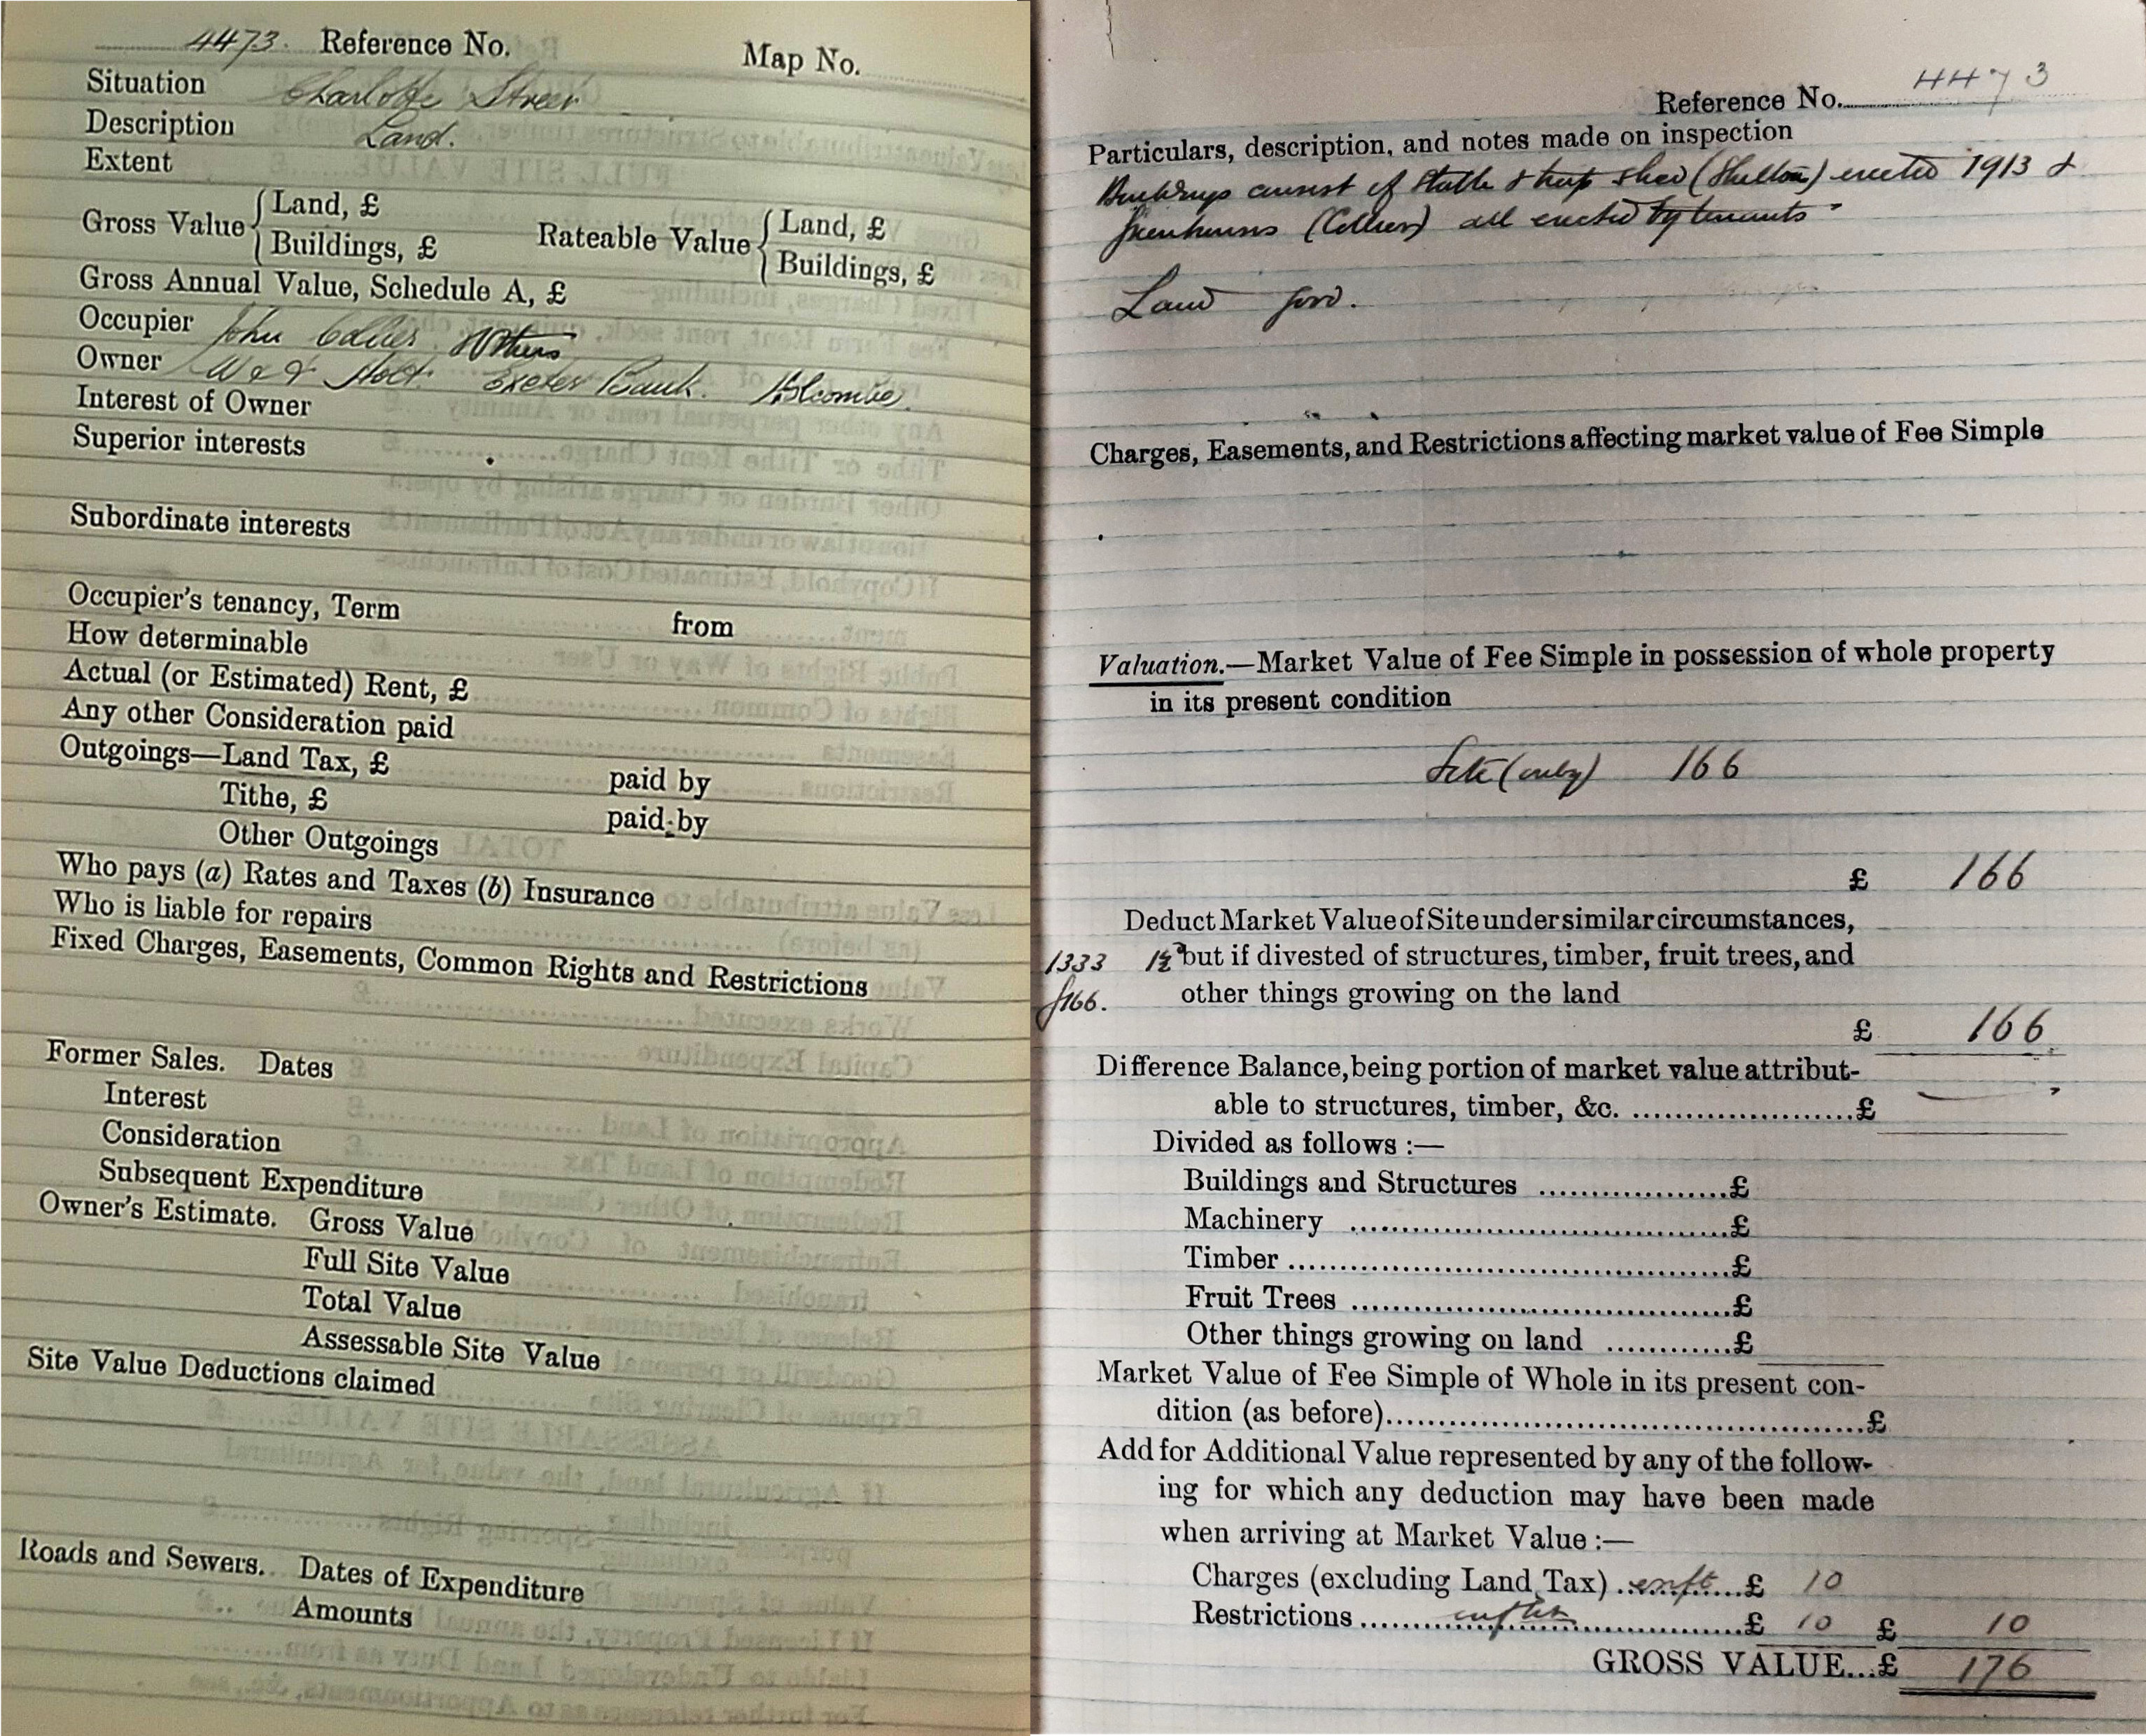 4473. Reference No. Map No.
Situation Charlotte Street
Description Land.
Extent
Gross Value { Land, £ Rateable Value { Land, £
Buildings, £ Buildings, £
Gross Annual Value, Schedule A, £
Occupier John Collier & Others
Owner W & J Holt. Exeter Bank. Holcombe.
Interest of Owner
Superior interests
Subordinate interests
Occupier's tenancy, Term from
How determinable
Actual (or Estimated) Rent, £
Any other Consideration paid
Outgoings—Land Tax, £ paid by
Tithe, £ paid by
Other Outgoings
Who pays (a) Rates and Taxes (b) Insurance
Who is liable for repairs
Fixed Charges, Easements, Common Rights and Restrictions
Former Sales. Dates
Interest
Consideration
Subsequent Expenditure
Owner's Estimate. Gross Value
Full Site Value
Total Value
Assessable Site Value
Site Value Deductions claimed
Roads and Sewers. Dates of Expenditure
Amounts
Reference No. 4473
Particulars, description, and notes made on inspection
Buildings consist of Stable & shed (Shelton) erected 1913 &
Greenhouses (Colliers) all erected by tenants
Land good.
Charges, Easements, and Restrictions affecting market value of Fee Simple
Valuation.—Market Value of Fee Simple in possession of whole property
in its present condition
Site (only) 166
£ 166
Deduct Market Value of Site under similar circumstances,
1333 1½ᵈ but if divested of structures, timber, fruit trees, and
£166. other things growing on the land
£ 166
Difference Balance, being portion of market value attribut-
able to structures, timber, &c. ......................£ —
Divided as follows :—
Buildings and Structures ...................£
Machinery ......................................£
Timber ............................................£
Fruit Trees ......................................£
Other things growing on land ............£
Market Value of Fee Simple of Whole in its present con-
dition (as before)................................................£
Add for Additional Value represented by any of the follow-
ing for which any deduction may have been made
when arriving at Market Value :—
Charges (excluding Land Tax) ............£ 10
Restrictions ......................................£ 10 £ 10
GROSS VALUE...£ 176